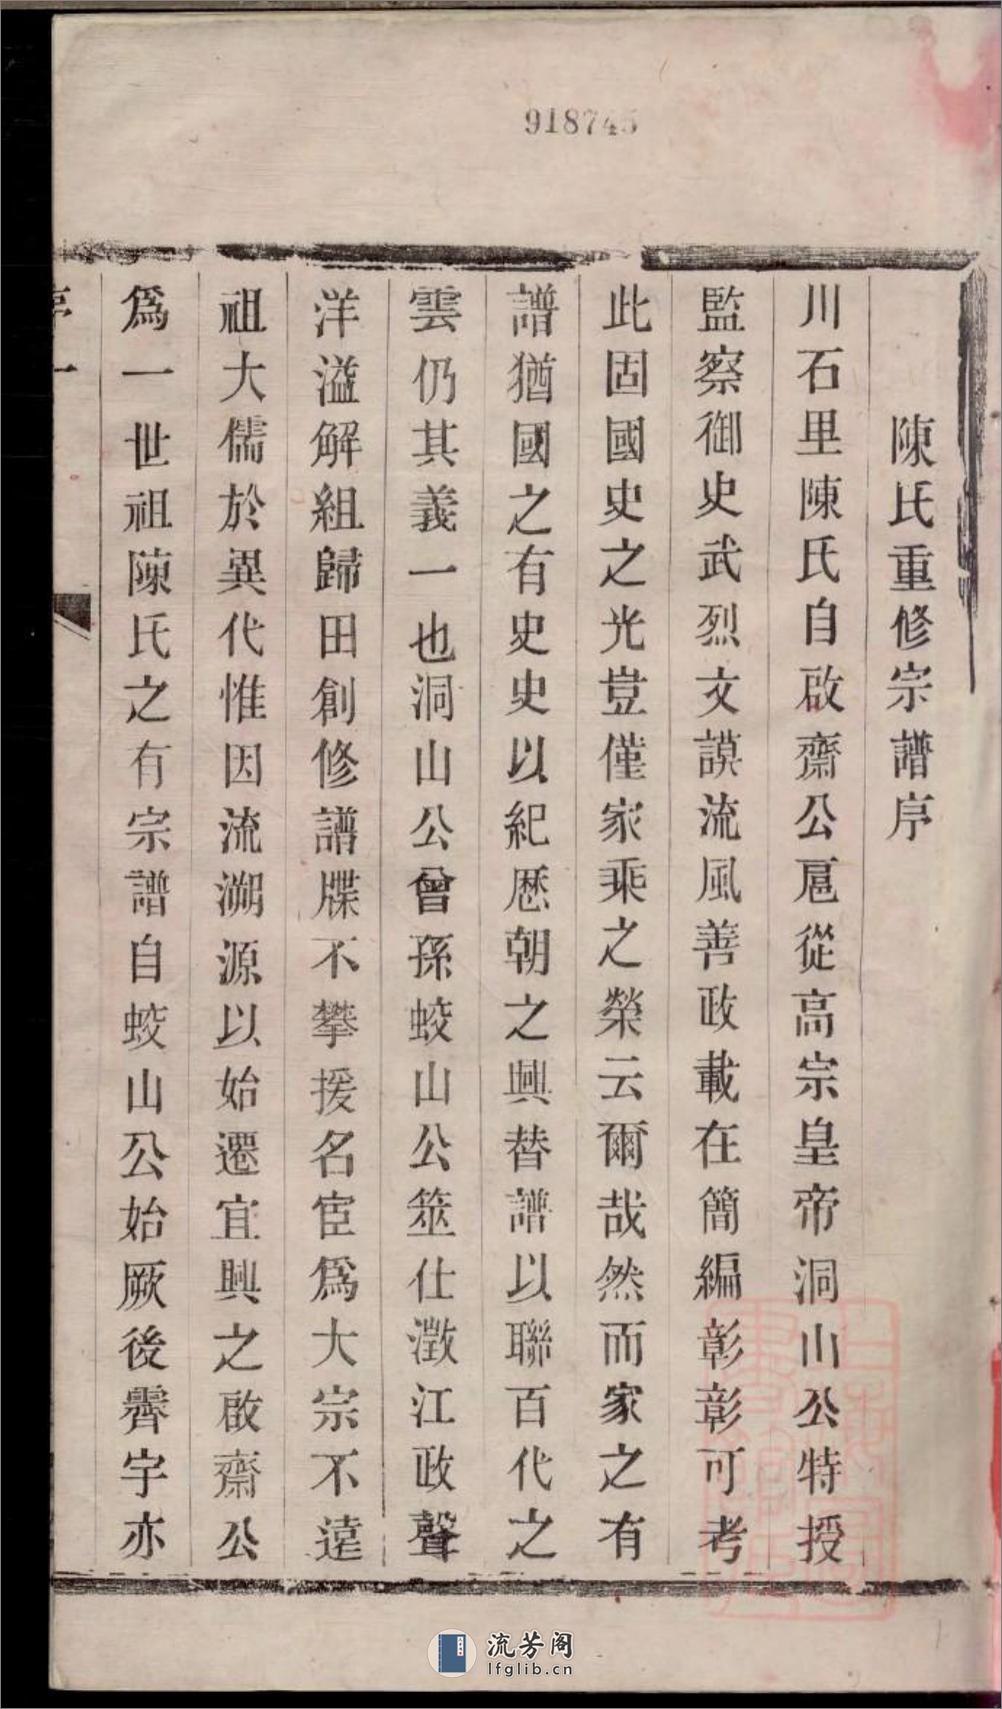 918745
陳氏重修宗譜序
川石里陳氏自啟齋公扈從高宗皇帝洞山公特授
監察御史武烈文謨流風善政載在簡編彰彰可考
此固國史之光豈僅家乘之榮云爾哉然而家之有
譜猶國之有史史以紀歷朝之興替譜以聯百代之
雲仍其義一也洞山公曾孫蛟山公筮仕澂江政聲
洋溢解組歸田創修譜牒不攀援名宦爲大宗不遠
祖大儒於異代惟因流溯源以始遷宜興之啟齋公
爲一世祖陳氏之有宗譜自蛟山公始厥後霽宇亦
序一
流芳阁
lfglib.cn